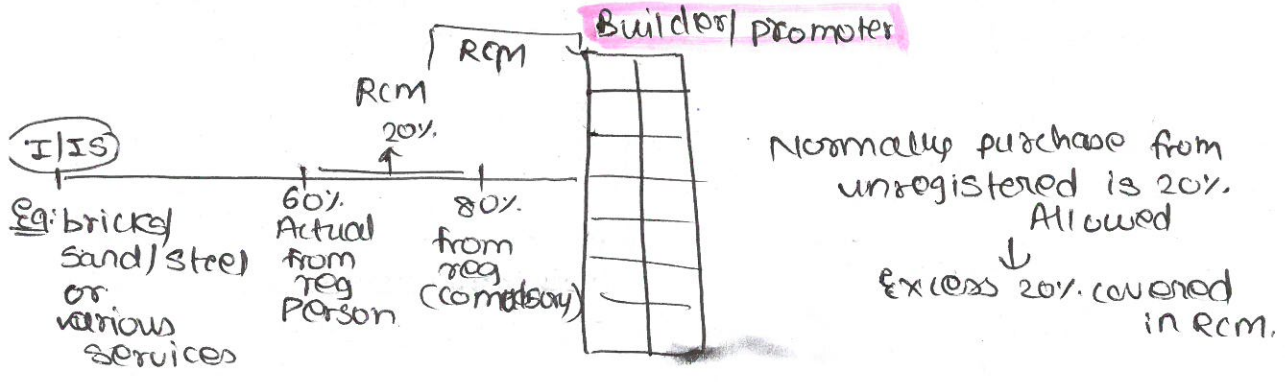 Builder/promoter
RCM
RCM
20%.
I/IS
60%.
80%.
Eg: bricks/
Sand/Steel
or
various
services
Actual
from
reg
Person
from
reg
(Compulsory)
Normally purchase from
unregistered is 20%.
Allowed
Excess 20%. covered
in RCM.